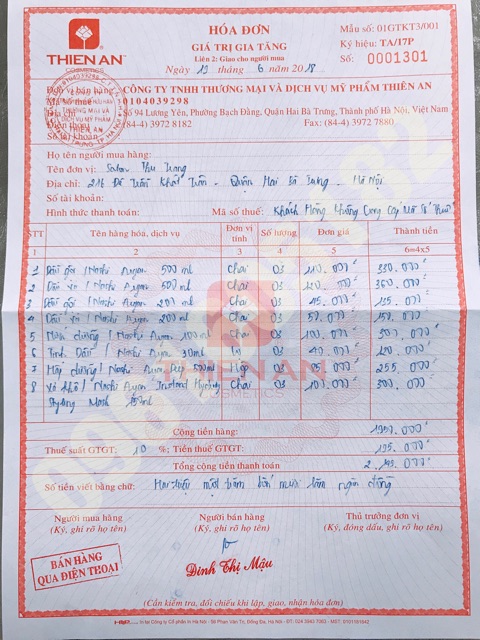 THIEN AN
COSMETICS
HÓA ĐƠN
GIÁ TRỊ GIA TĂNG
Liên 2: Giao cho người mua
Ngày 12 tháng 6 năm 2018
Mẫu số: 01GTKT3/001
Ký hiệu: TA/17P
Số: 0001301
Đơn vị bán hàng: CÔNG TY TNHH THƯƠNG MẠI VÀ DỊCH VỤ MỸ PHẨM THIÊN AN
Mã số thuế: 0104039298
Địa chỉ: Số 94 Lương Yên, Phường Bạch Đằng, Quận Hai Bà Trưng, Thành phố Hà Nội, Việt Nam
Điện thoại: (84-4) 3972 8182 Fax: (84-4) 3972 7880
Số tài khoản:
Họ tên người mua hàng:
Tên đơn vị: Salon Thu Trang
Địa chỉ: 216 Đê Trần Khát Trân - Quận Hai Bà Trưng - Hà Nội
Số tài khoản:
Hình thức thanh toán: Mã số thuế: Khách Không Thường Cung Cấp Mã Số Thuế
STT Tên hàng hóa, dịch vụ Đơn vị tính Số lượng Đơn giá Thành tiền
1 2 3 4 5 6=4x5
1 Dầu gội / Nashi Argan 500 ml Chai 03 110.000đ 330.000đ
2 Dầu xả / Nashi Argan 500 ml Chai 03 120.000đ 360.000đ
3 Dầu gội / Nashi Argan 200 ml Chai 03 45.000đ 135.000đ
4 Dầu xả / Nashi Argan 200 ml Chai 03 50.000đ 150.000đ
5 dưỡng / Nashi Argan 100 ml Chai 03 100.000đ 300.000đ
6 Tinh Dầu / Nashi Argan 30ml 03 40.000đ 120.000đ
7 Hấp dưỡng / Nashi Argan Deep 500ml Hộp 03 85.000đ 255.000đ
8 Xả khô / Nashi Argan Instant Chai 03 100.000đ 300.000đ
Styling Mask 150ml
Cộng tiền hàng: 1950.000đ
Thuế suất GTGT: 10 %; Tiền thuế GTGT: 195.000đ
Tổng cộng tiền thanh toán 2.145.000đ
Số tiền viết bằng chữ: Hai triệu một trăm bốn mươi lăm ngàn đồng
Người mua hàng Người bán hàng Thủ trưởng đơn vị
(Ký, ghi rõ họ tên) (Ký, ghi rõ họ tên) (Ký, đóng dấu, ghi rõ họ tên)
BÁN HÀNG
QUA ĐIỆN THOẠI
Đinh Thị Mậu
(Cần kiểm tra, đối chiếu khi lập, giao, nhận hóa đơn)